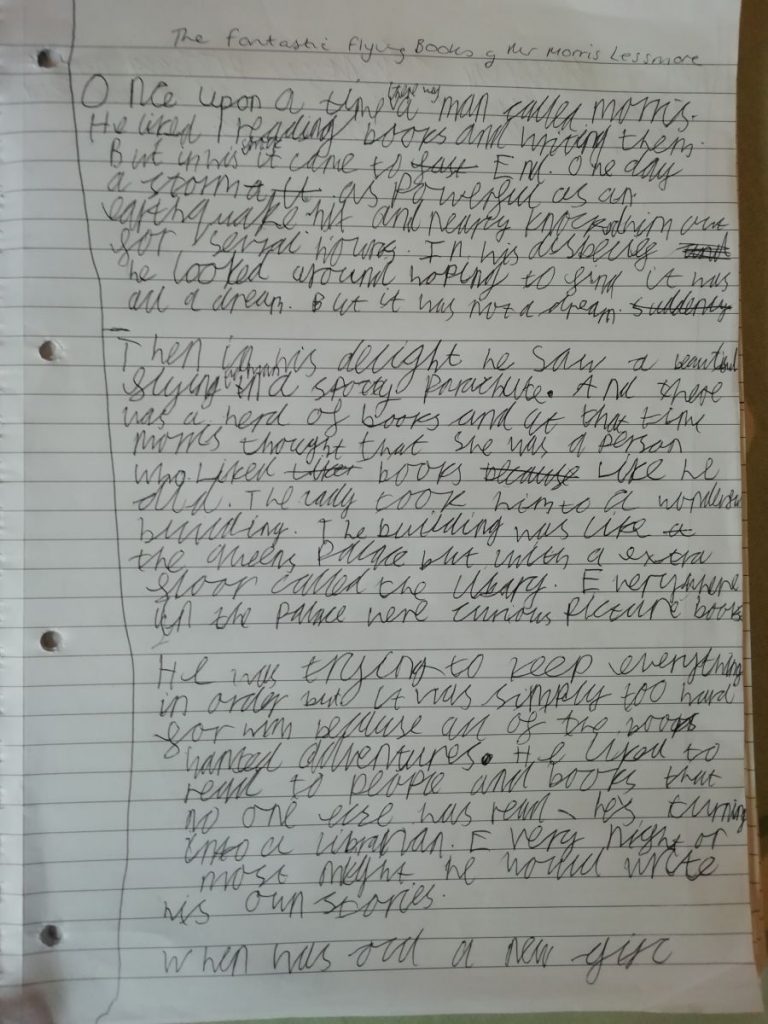 The fantastic flying Books of Mr Morris Lessmore
Once upon a time there was a man called morris.
He liked reading books and writing them.
But in his it came to fast End. One day
a storm it as Powerful as an
earthquake hit and nearly knocked him out
for serval hours. In his disbelief and
he looked around hoping to find it was
all a dream. But it was not a dream. suddenly
Then in his delight he saw a beautiful
flying in a spotty Parachute. And there
was a herd of books and at that time
morris thought that she was a person
who liked books because like he
did. The lady took him to a wonderful
building. The building was like a
the queens Palace but with a extra
floor called the libary. Everywhere
in the palace were curious picture books
He was trying to keep everything
in order but it was simply too hard
for him because all of the books
wanted adventures. He liked to
read to people and books that
no one else has read hes turning
into a librarian. Every night or
most might he would write
his own stories.
When was old a new girl